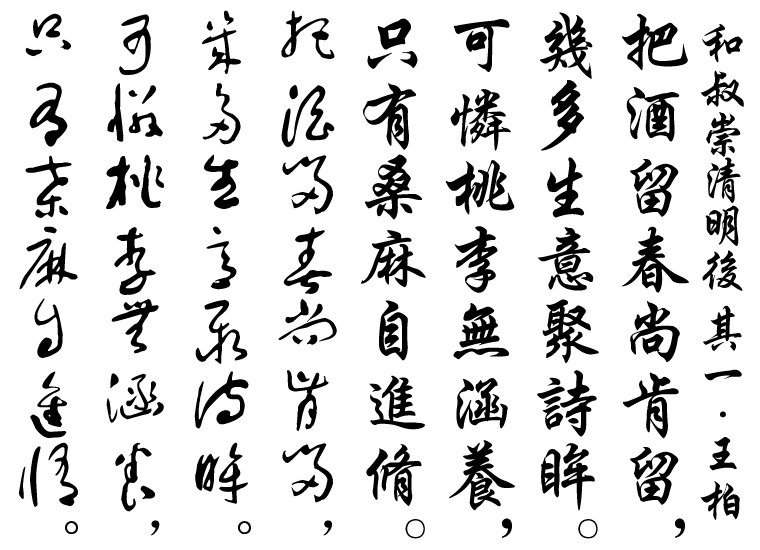 和叔崇清明後 其一・王柏
把酒留春尚肯留,
幾多生意聚詩眸。
可憐桃李無涵養,
只有桑麻自進脩。
把酒留春尚肯留,
幾多生意聚詩眸。
可憐桃李無涵養,
只有桑麻自進脩。